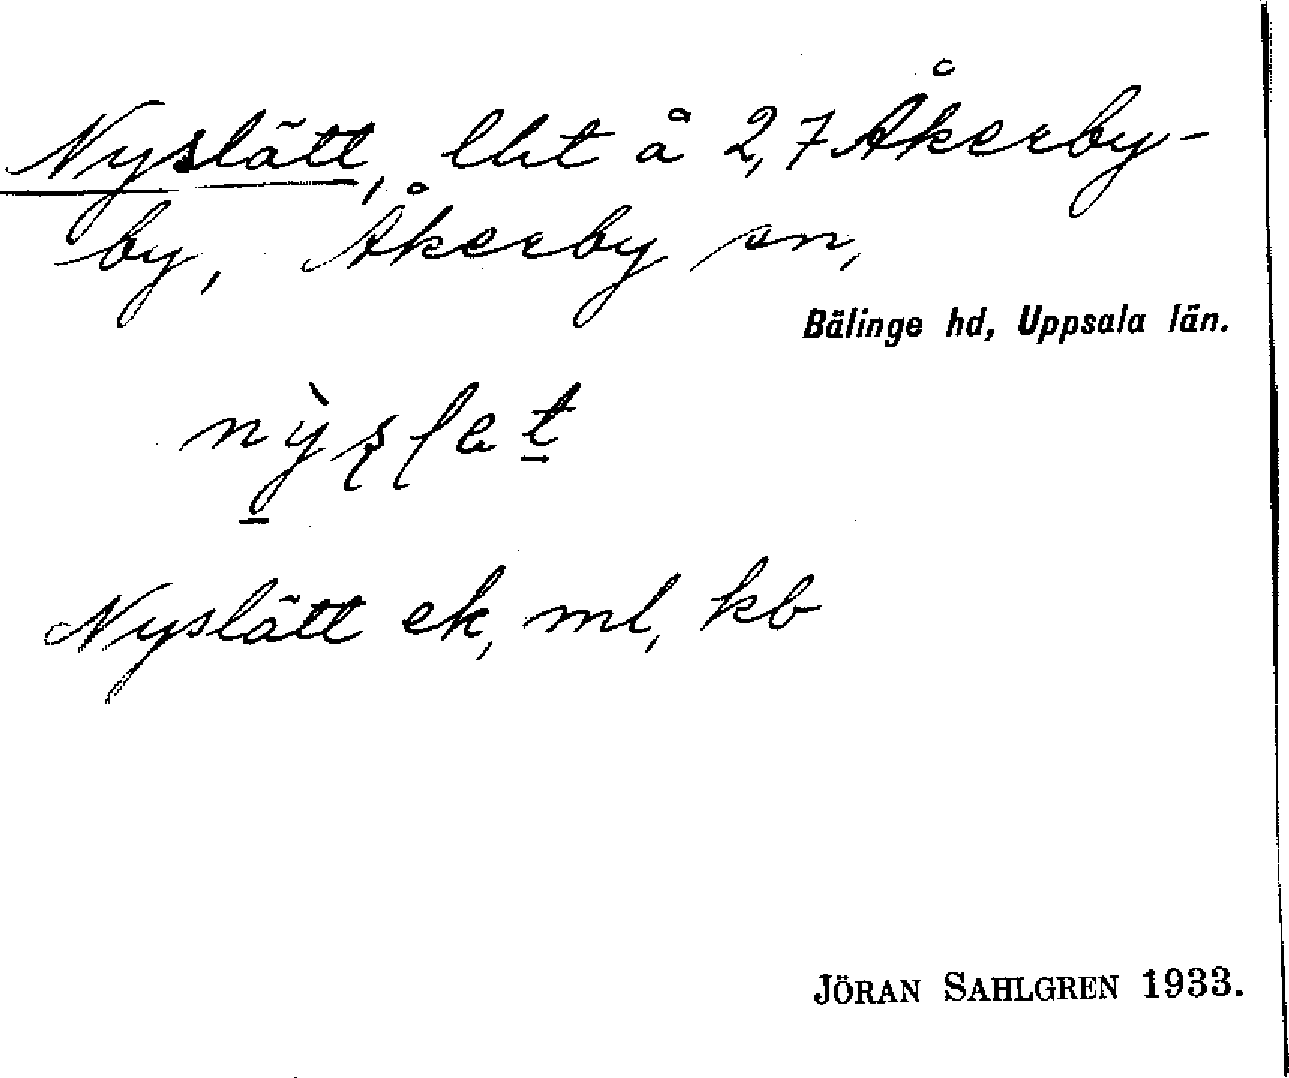 Nyslätt, lht å 2,7 Åkerby-
by, Åkerby sn,
Bälinge hd, Uppsala län.
Nyslätt ek, ml, kb
JÖRAN SAHLGREN 1933.